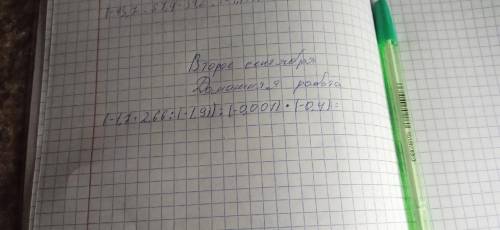 Второе сентября
Домашняя работа
(-1,7·266:(-19)):(-0,001)·(-0,4)=